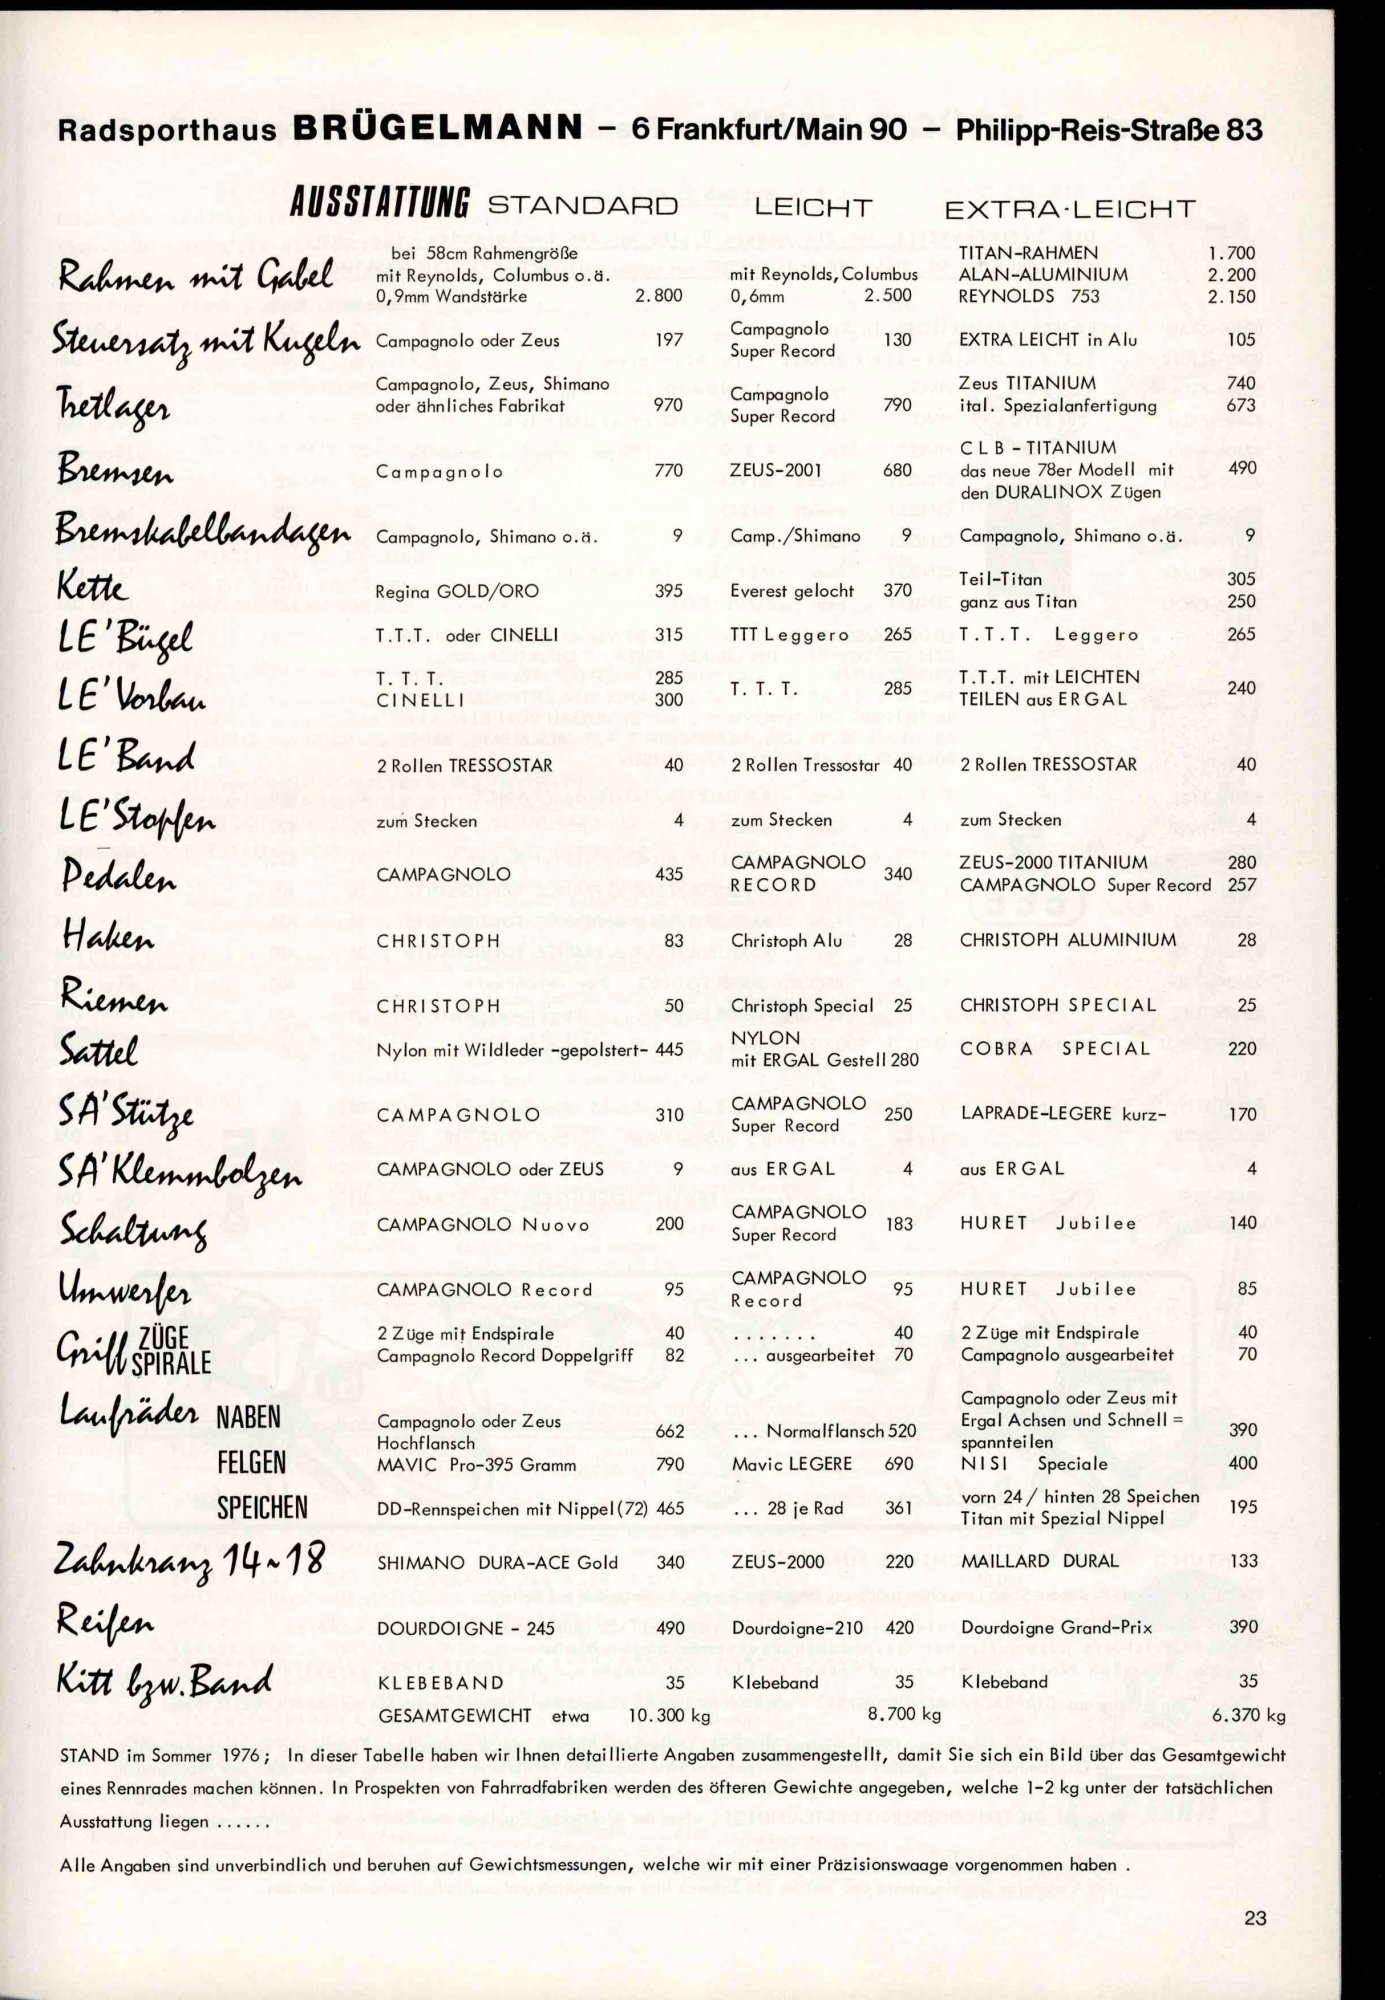 Radsporthaus BRÜGELMANN – 6 Frankfurt/Main 90 – Philipp-Reis-Straße 83
AUSSTATTUNG STANDARD LEICHT EXTRA-LEICHT
bei 58cm Rahmengröße TITAN-RAHMEN 1.700
Rahmen mit Gabel mit Reynolds, Columbus o.ä. mit Reynolds, Columbus ALAN-ALUMINIUM 2.200
0,9mm Wandstärke 2.800 0,6mm 2.500 REYNOLDS 753 2.150
Steuersatz mit Kugeln Campagnolo oder Zeus 197 Campagnolo 130 EXTRA LEICHT in Alu 105
Super Record
Tretlager Campagnolo, Zeus, Shimano Campagnolo Zeus TITANIUM 740
oder ähnliches Fabrikat 970 Super Record 790 ital. Spezialanfertigung 673
C L B - TITANIUM
Bremsen Campagnolo 770 ZEUS-2001 680 das neue 78er Modell mit 490
den DURALINOX Zügen
Bremskabelbandagen Campagnolo, Shimano o.ä. 9 Camp./Shimano 9 Campagnolo, Shimano o.ä. 9
Kette Regina GOLD/ORO 395 Everest gelocht 370 Teil-Titan 305
ganz aus Titan 250
LE'Bügel T.T.T. oder CINELLI 315 TTT Leggero 265 T.T.T. Leggero 265
LE'Vorbau T. T. T. 285 T. T. T. 285 T.T.T. mit LEICHTEN 240
CINELLI 300 TEILEN aus ERGAL
LE'Band 2 Rollen TRESSOSTAR 40 2 Rollen Tressostar 40 2 Rollen TRESSOSTAR 40
LE'Stopfen zum Stecken 4 zum Stecken 4 zum Stecken 4
Pedalen CAMPAGNOLO 435 CAMPAGNOLO 340 ZEUS-2000 TITANIUM 280
RECORD CAMPAGNOLO Super Record 257
Haken CHRISTOPH 83 Christoph Alu 28 CHRISTOPH ALUMINIUM 28
Riemen CHRISTOPH 50 Christoph Special 25 CHRISTOPH SPECIAL 25
Sattel Nylon mit Wildleder -gepolstert- 445 NYLON COBRA SPECIAL 220
mit ERGAL Gestell 280
SA'Stütze CAMPAGNOLO 310 CAMPAGNOLO 250 LAPRADE-LEGERE kurz- 170
Super Record
SA'Klemmbolzen CAMPAGNOLO oder ZEUS 9 aus ERGAL 4 aus ERGAL 4
Schaltung CAMPAGNOLO Nuovo 200 CAMPAGNOLO 183 HURET Jubilee 140
Super Record
Umwerfer CAMPAGNOLO Record 95 CAMPAGNOLO 95 HURET Jubilee 85
Record
Griff ZÜGE 2 Züge mit Endspirale 40 ....... 40 2 Züge mit Endspirale 40
SPIRALE Campagnolo Record Doppelgriff 82 ... ausgearbeitet 70 Campagnolo ausgearbeitet 70
Campagnolo oder Zeus mit
Laufräder NABEN Campagnolo oder Zeus 662 ... Normalflansch 520 Ergal Achsen und Schnell = 390
Hochflansch spannteilen
FELGEN MAVIC Pro-395 Gramm 790 Mavic LEGERE 690 NISI Speciale 400
SPEICHEN DD-Rennspeichen mit Nippel(72) 465 ... 28 je Rad 361 vorn 24 / hinten 28 Speichen 195
Titan mit Spezial Nippel
Zahnkranz 14~18 SHIMANO DURA-ACE Gold 340 ZEUS-2000 220 MAILLARD DURAL 133
Reifen DOURDOIGNE - 245 490 Dourdoigne-210 420 Dourdoigne Grand-Prix 390
Kitt bzw. Band KLEBEBAND 35 Klebeband 35 Klebeband 35
GESAMTGEWICHT etwa 10.300 kg 8.700 kg 6.370 kg
STAND im Sommer 1976; In dieser Tabelle haben wir Ihnen detaillierte Angaben zusammengestellt, damit Sie sich ein Bild über das Gesamtgewicht
eines Rennrades machen können. In Prospekten von Fahrradfabriken werden des öfteren Gewichte angegeben, welche 1-2 kg unter der tatsächlichen
Ausstattung liegen ......
Alle Angaben sind unverbindlich und beruhen auf Gewichtsmessungen, welche wir mit einer Präzisionswaage vorgenommen haben .
23